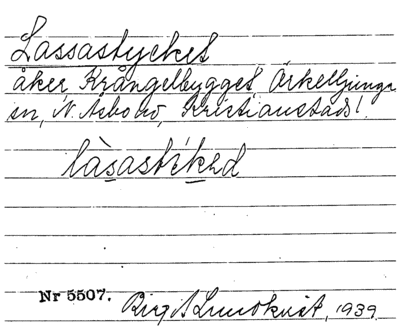 Lassastycket
åker, Krångelbygget, Örkelljunga
sn, N. Åsbo hd, Kristianstads l.
làsastíkɛd
Nr 5507.
Birgit Lundkvist, 1939